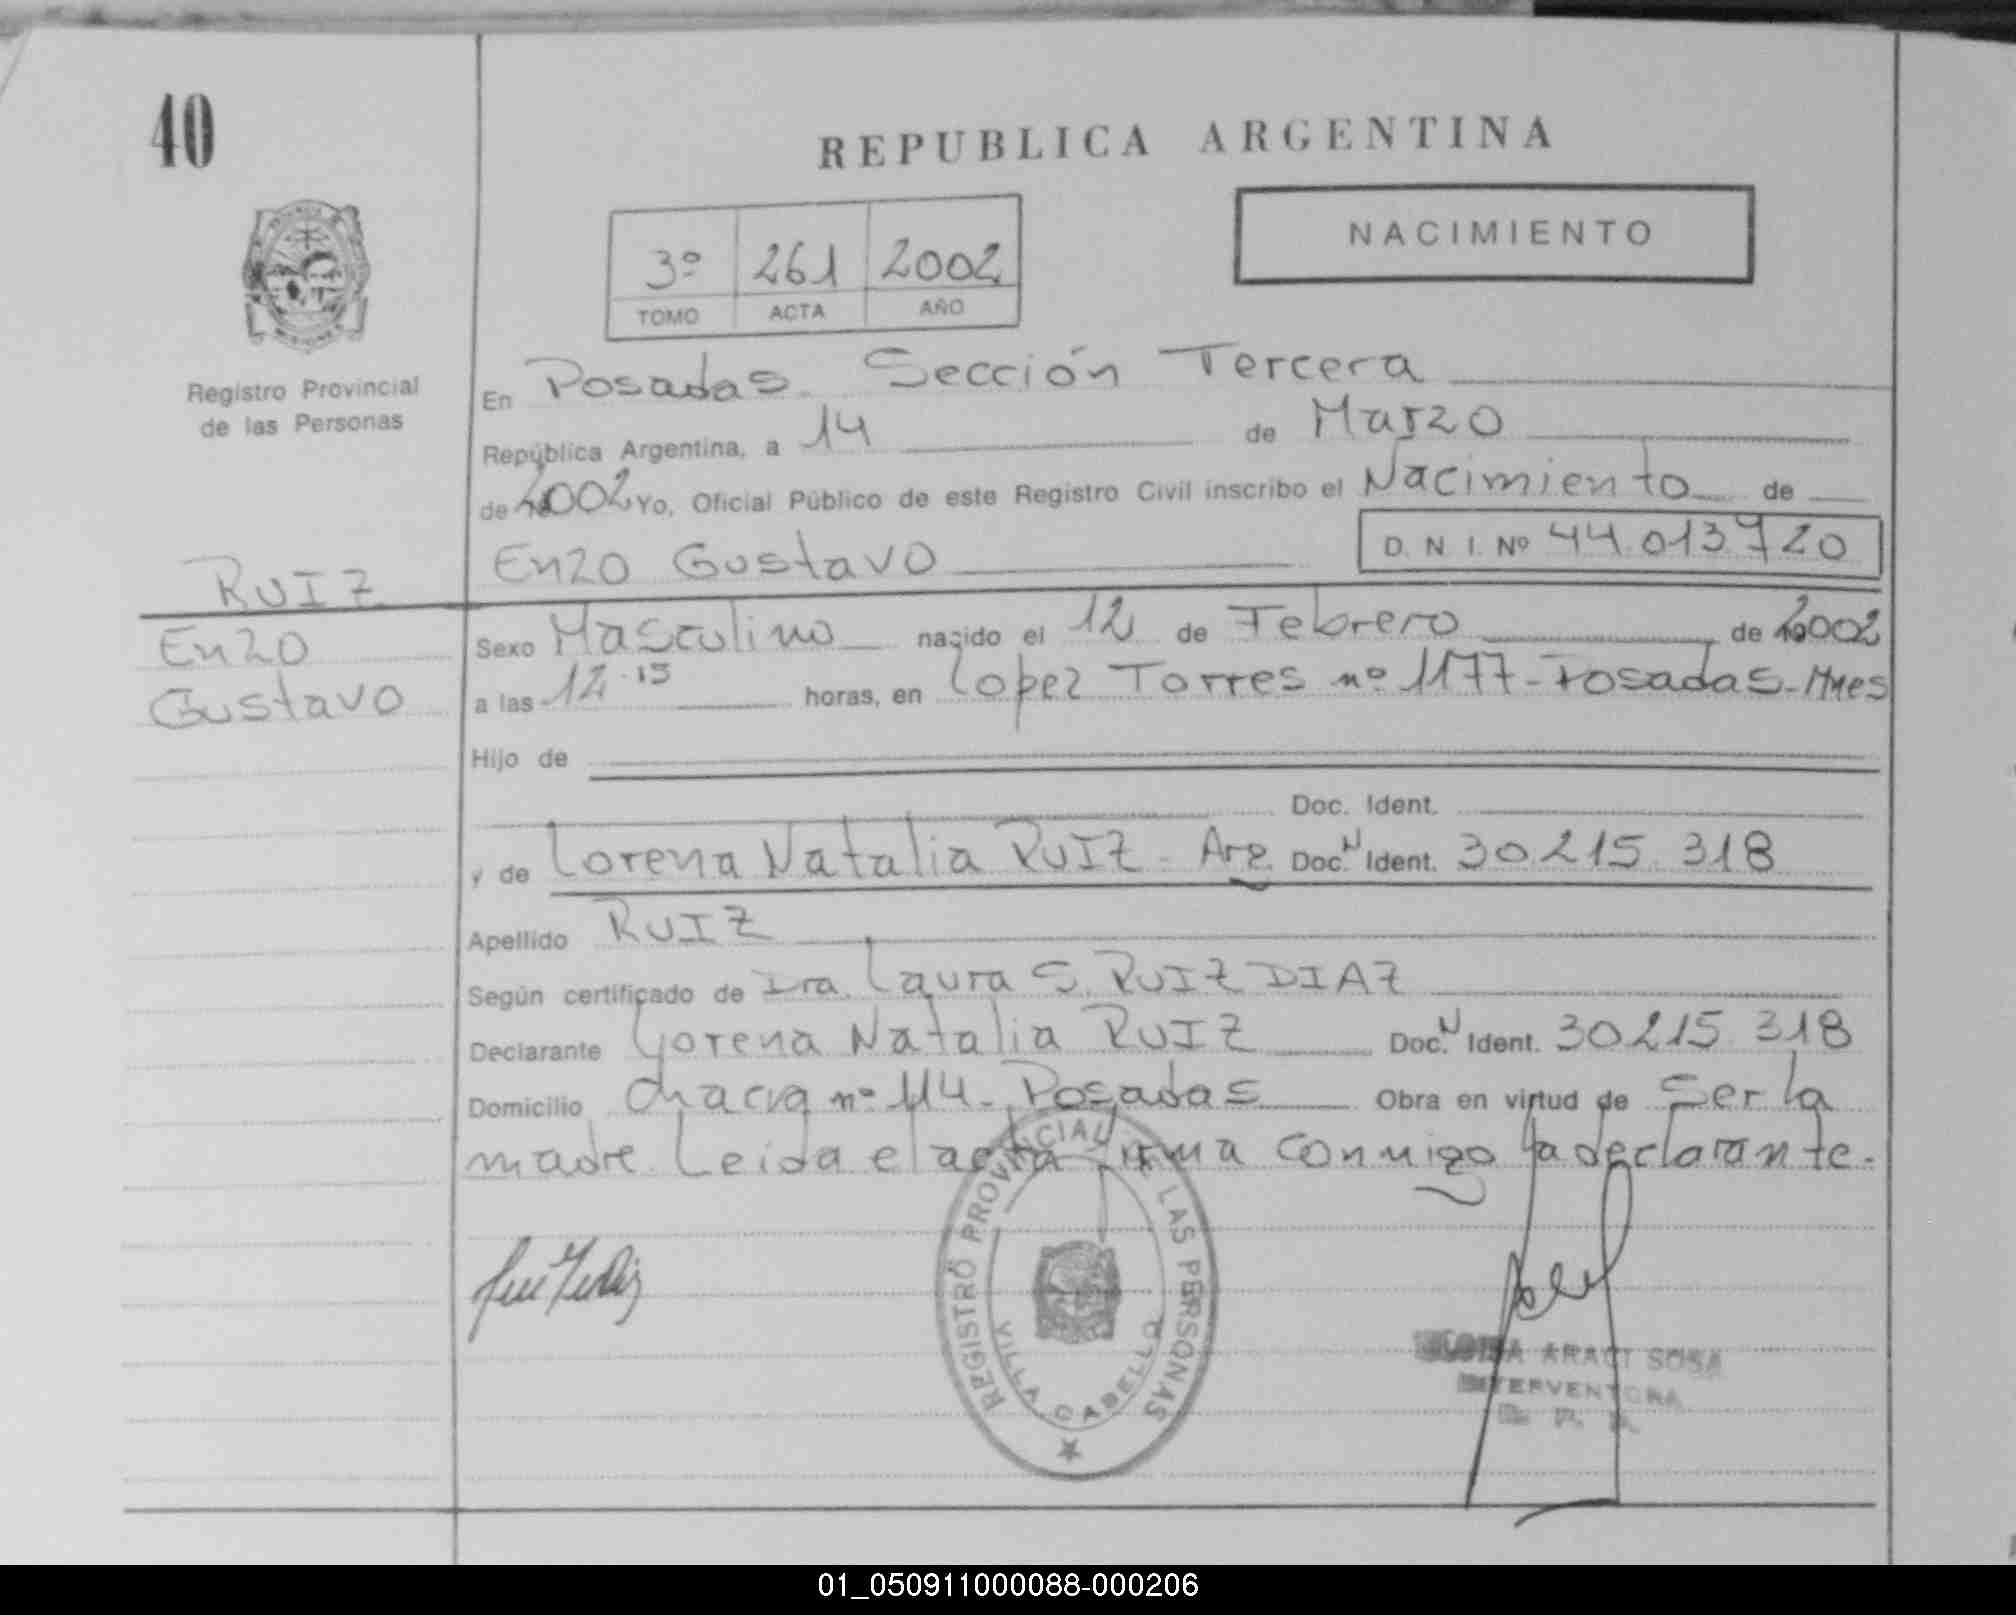 40
REPUBLICA ARGENTINA
NACIMIENTO
3º 261 2002
TOMO ACTA AÑO
Registro Provincial
de las Personas
En Posadas Sección Tercera
República Argentina, a 14 de Marzo
de 2002 Yo, Oficial Público de este Registro Civil inscribo el Nacimiento de
Enzo Gustavo D. N. I. Nº 44.013.720
RUIZ
Enzo
Gustavo
Sexo Masculino nacido el 12 de Febrero de 2002
a las 12.15 horas, en Lopez Torres nº 1177-Posadas-Mnes
Hijo de
Doc. Ident.
y de Lorena Natalia RUIZ - Arg. Doc. N Ident. 30.215.318
Apellido RUIZ
Según certificado de Dra. Laura S. RUIZ DIAZ
Declarante Lorena Natalia RUIZ Doc. N Ident. 30215.318
Domicilio Chacra nº 114 - Posadas Obra en virtud de Ser la
madre. Leida el acta firma conmigo la declarante.
REGISTRO PROVINCIAL DE LAS PERSONAS
VILLA CABELLO
ARACI SOSA
INTERVENTORA
01_050911000088-000206